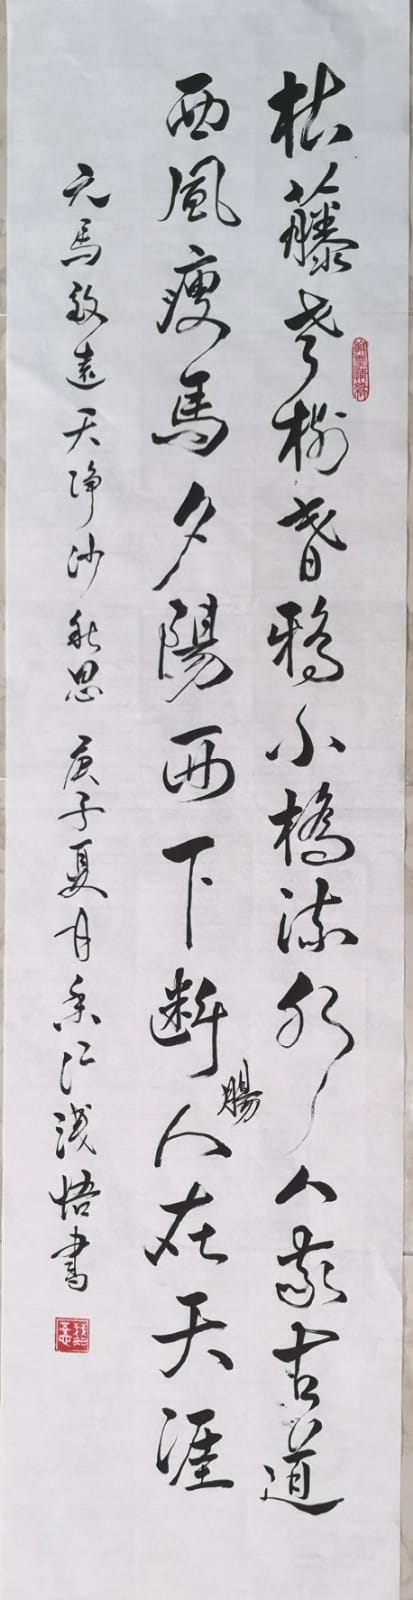 枯藤老樹昏鴉小橋流水人家古道
西風瘦馬夕陽西下斷腸人在天涯
元馬致遠天淨沙秋思 庚子夏月香江淺悟書